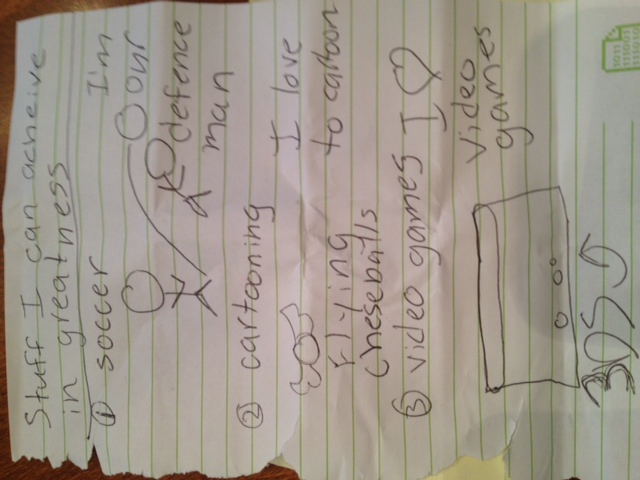 Stuff I can acheive
in greatness
① soccer I'm
our
defence
man
② cartooning I love
to cartoon
Flying
Cheseballs
③ video games I ♡
video
games
3DS